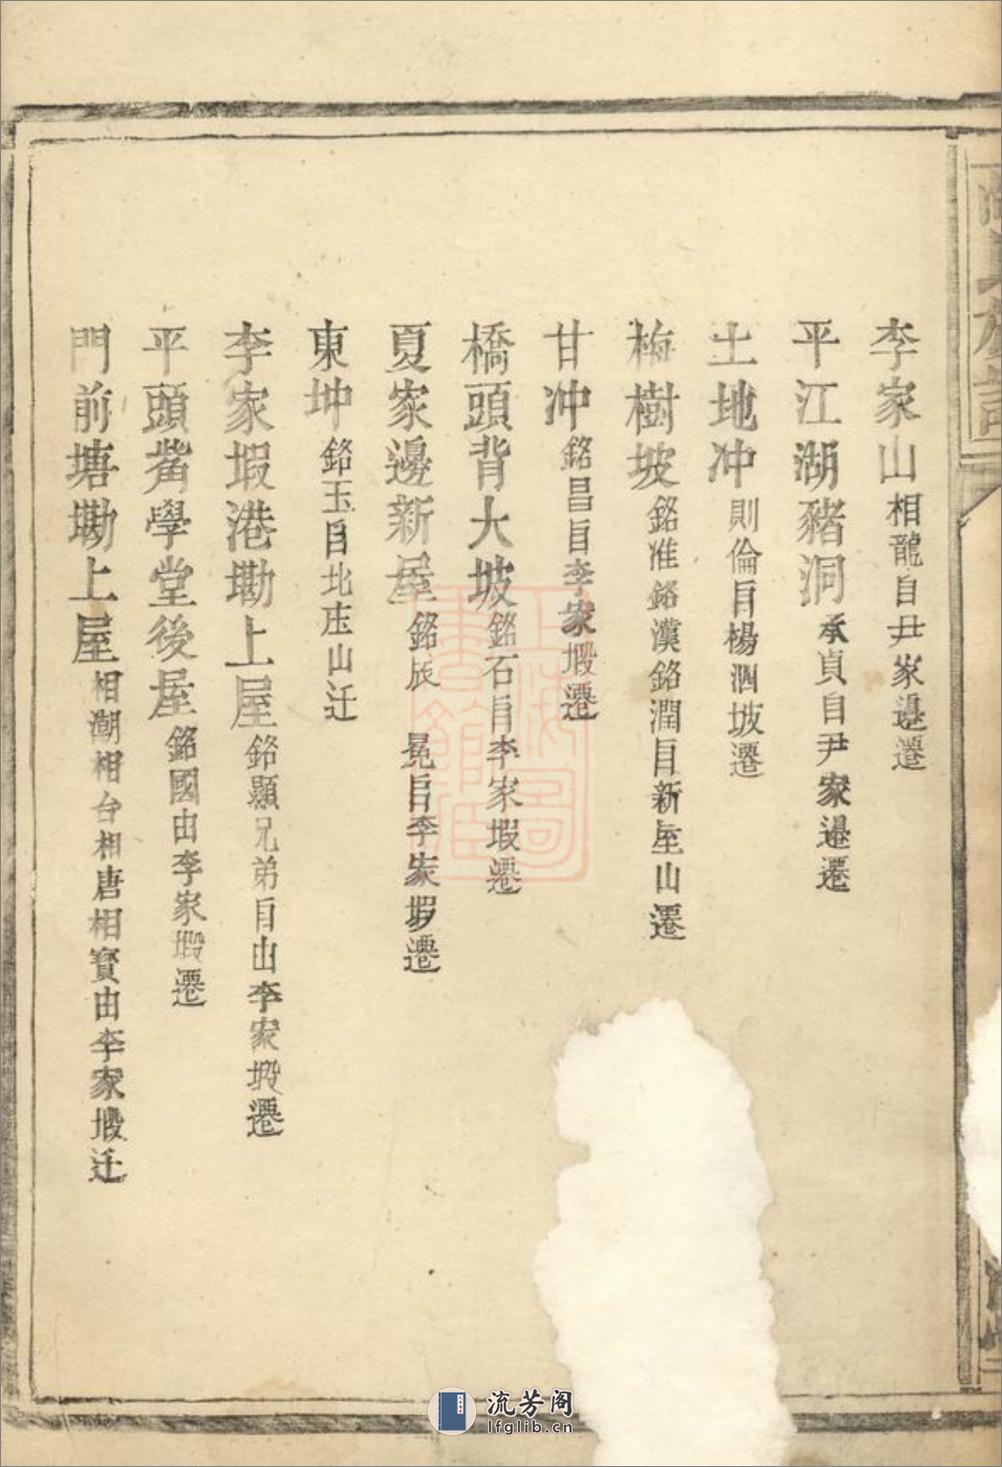 李家山相龍自尹家邉遷
平江湖豬洞承貞自尹家邉遷
土地冲則倫自楊泗坡遷
梅樹坡銘准銘漢銘潤自新屋山遷
甘冲銘昌自李家塅遷
橋頭背大坡銘石自李家塅遷
夏家邊新屋銘辰 冕自李家塅遷
東坤銘玉自北庄山迁
李家塅港勘上屋銘顯兄弟自山李家塅遷
平頭嵛學堂後屋銘國由李家塅遷
門前塘勘上屋相潮相台相唐相寳由李家塅迁
氏族譜
上海圖書館藏
流芳阁
lfglib.cn